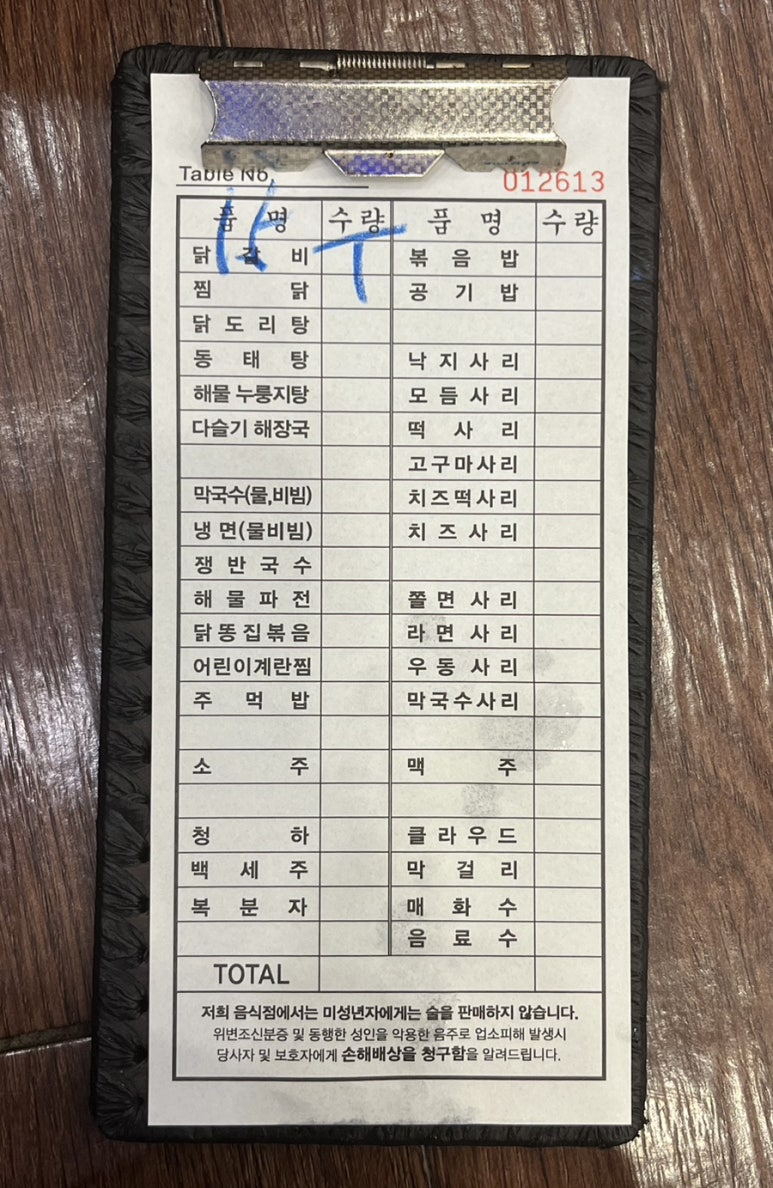 Table No.
012613
품 명 수 량 품 명 수 량
닭 갈 비 볶 음 밥
찜 닭 공 기 밥
닭 도 리 탕
동 태 탕 낙 지 사 리
해물 누룽지탕 모 듬 사 리
다슬기 해장국 떡 사 리
고구마사리
막국수(물,비빔) 치즈떡사리
냉 면(물비빔) 치 즈 사 리
쟁 반 국 수
해 물 파 전 쫄 면 사 리
닭똥집볶음 라 면 사 리
어린이계란찜 우 동 사 리
주 먹 밥 막국수사리
소 주 맥 주
청 하 클 라 우 드
백 세 주 막 걸 리
복 분 자 매 화 수
음 료 수
TOTAL
저희 음식점에서는 미성년자에게는 술을 판매하지 않습니다.
위변조신분증 및 동행한 성인을 악용한 음주로 업소피해 발생시
당사자 및 보호자에게 손해배상을 청구함을 알려드립니다.